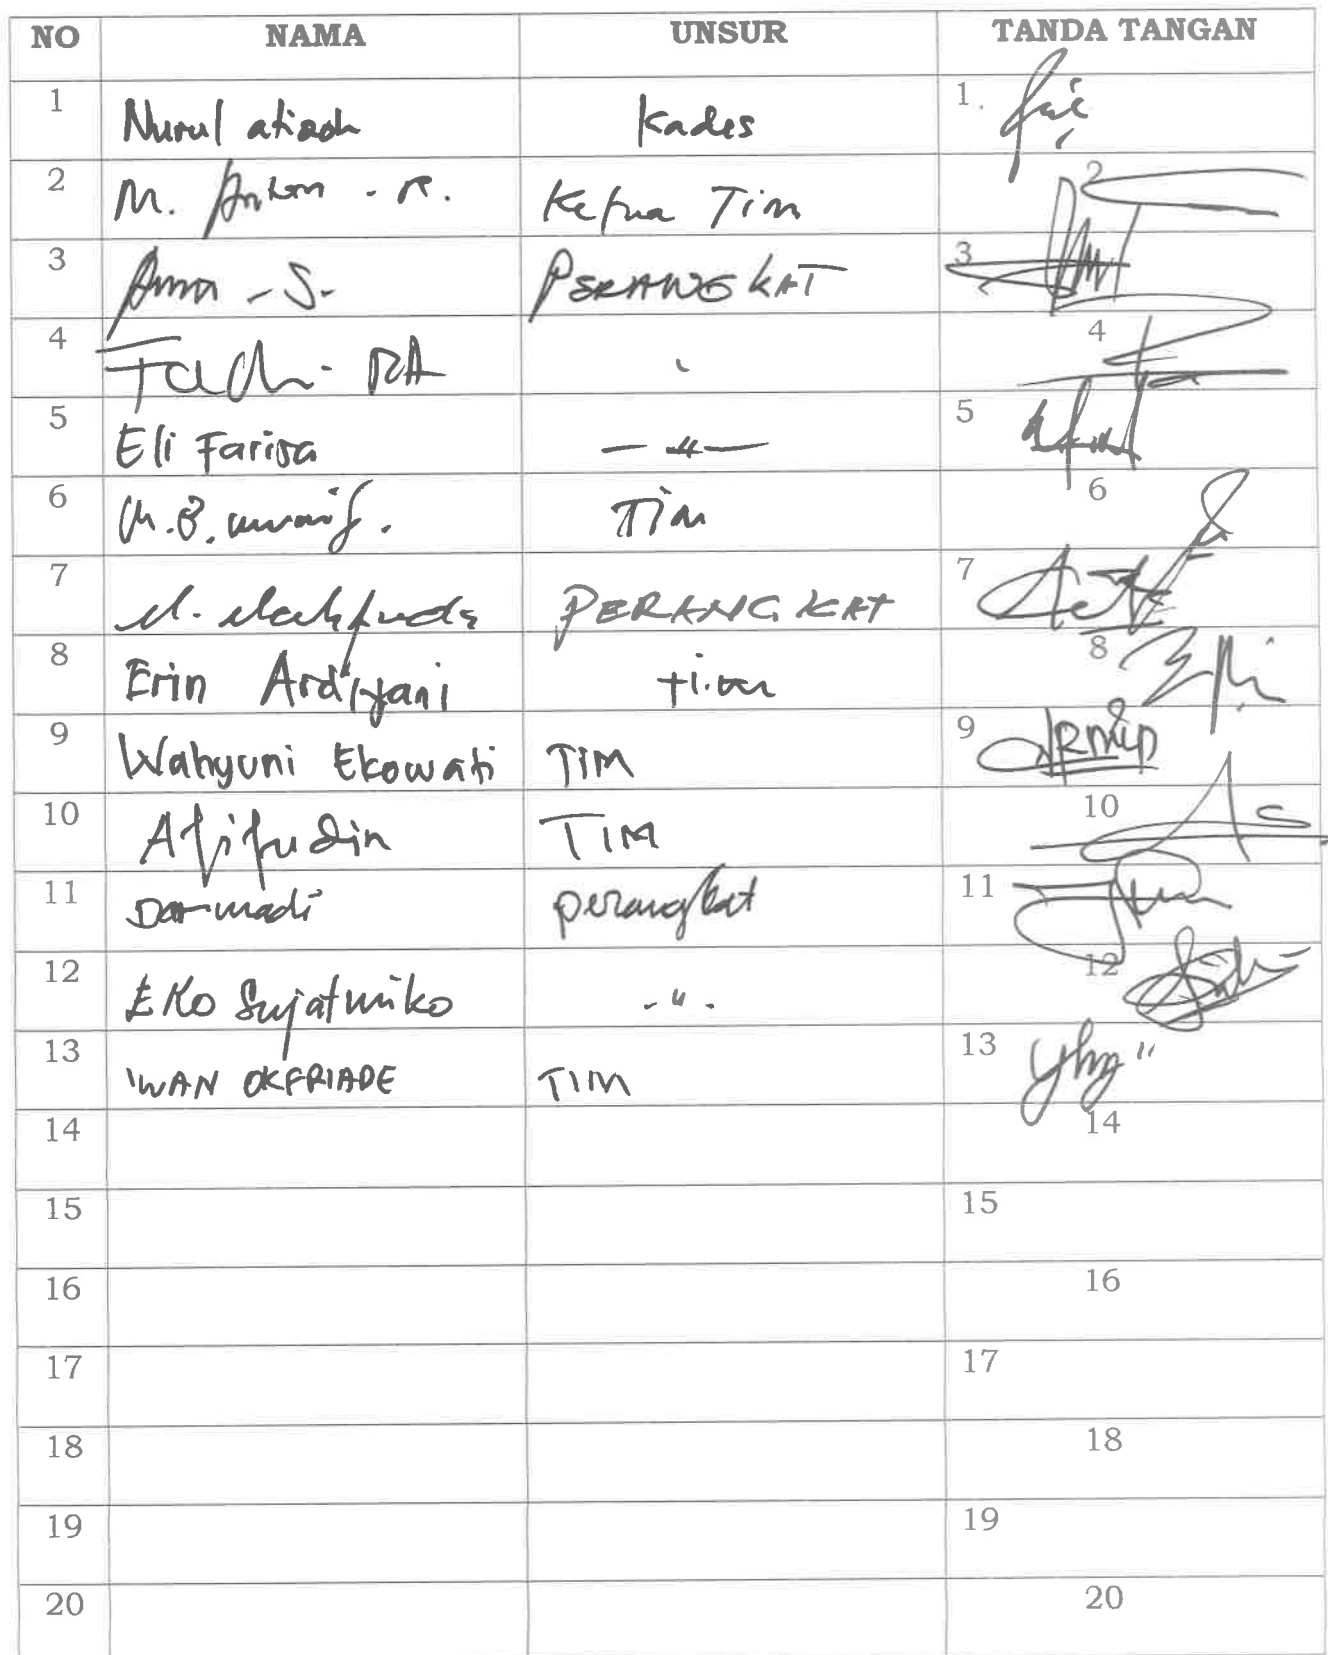 NO NAMA UNSUR TANDA TANGAN
1 Nurul atiadh Kades 1.
2 M. - R. Ketua Tim 2
3 - S. PERANGKAT 3
4 RA 4
5 Eli Farisa — " — 5
6 M.B. Tim 6
7 PERANGKAT 7
8 Erin Ardiyani tim 8
9 Wahyuni Ekowati TIM 9
10 Afifudin TIM 10
11 Darmadi perangkat 11
12 EKo Sujatmiko - " - 12
13 IWAN OKFRIADE TIM 13
14 14
15 15
16 16
17 17
18 18
19 19
20 20